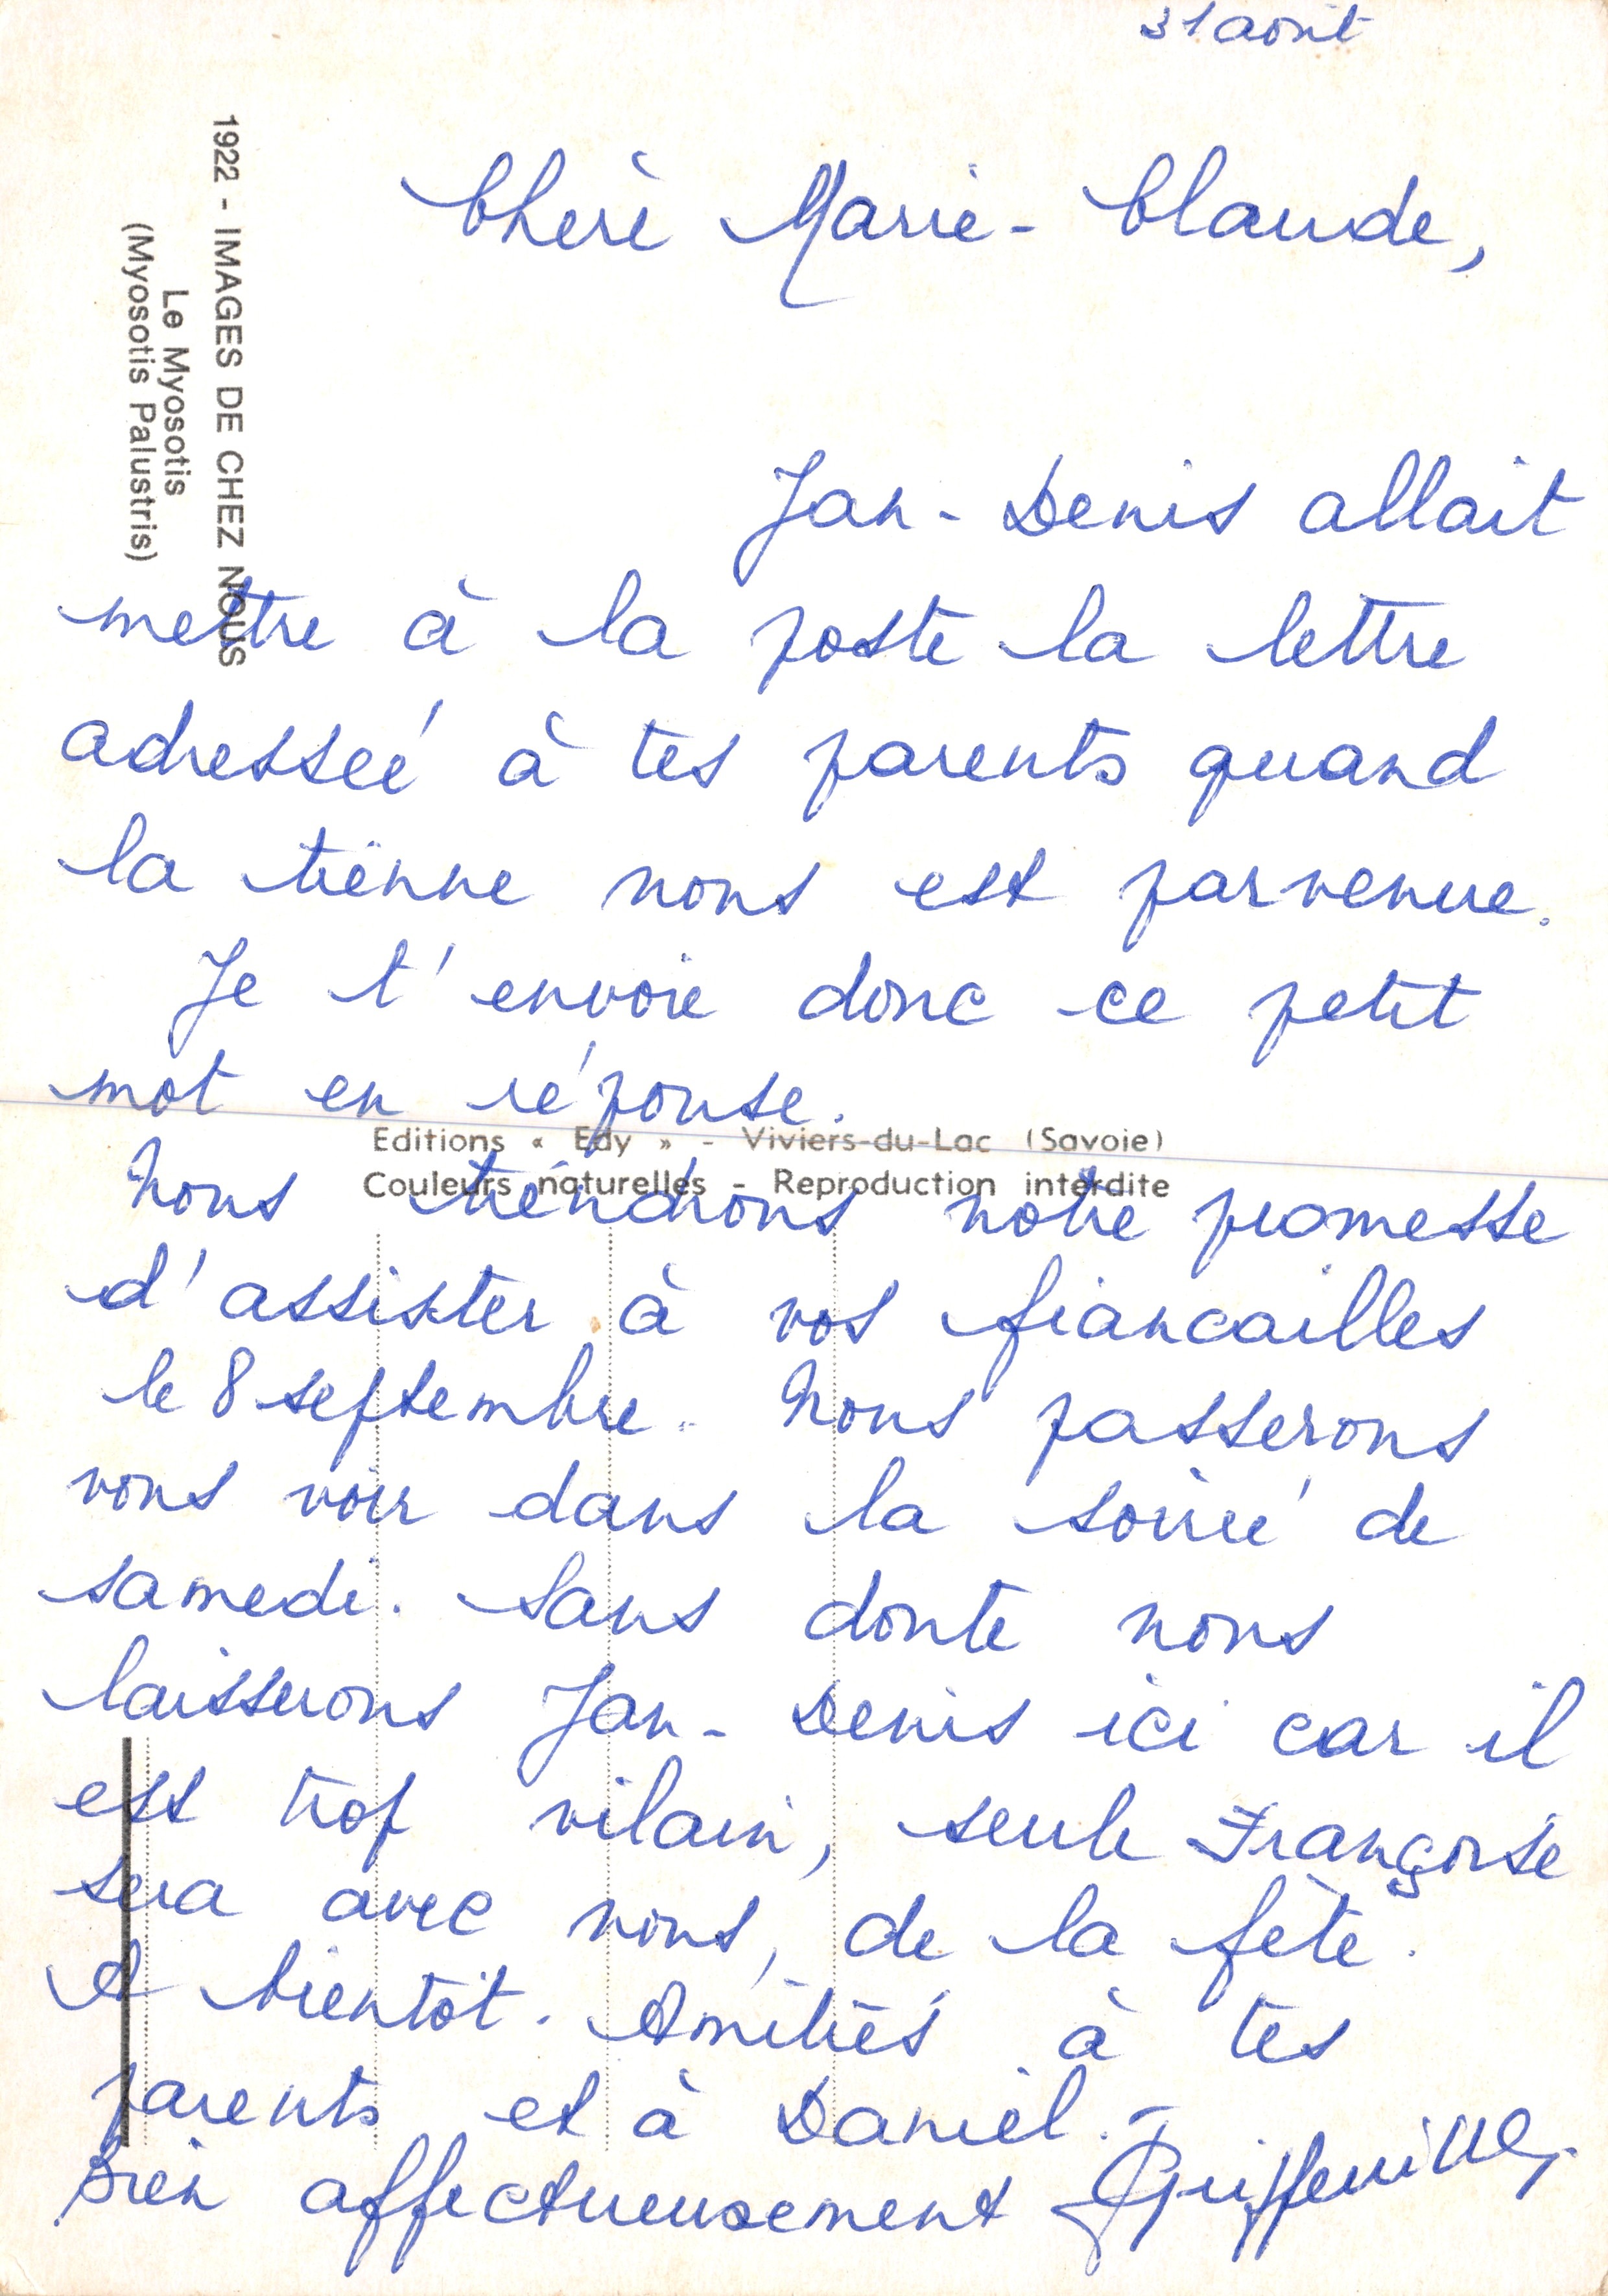 31 août
Chère Marie-Claude,
Jan-Denis allait
mettre à la poste la lettre
adressée à tes parents quand
la tienne nous est parvenue.
Je t'envoie donc ce petit
mot en réponse.
Nous tiendrons notre promesse
d'assister à vos fiancailles
le 8 septembre. Nous passerons
vous voir dans la soirée de
samedi. Sans doute nous
laisserons Jan-Denis ici car il
est trop vilain, seule Françoise
sera avec nous, de la fête.
A bientôt. Amitiés à tes
parents et à Daniel.
Bien affectueusement
1922 - IMAGES DE CHEZ NOUS
Le Myosotis
(Myosotis Palustris)
Editions « Edy » - Viviers-du-Lac (Savoie)
Couleurs naturelles - Reproduction interdite